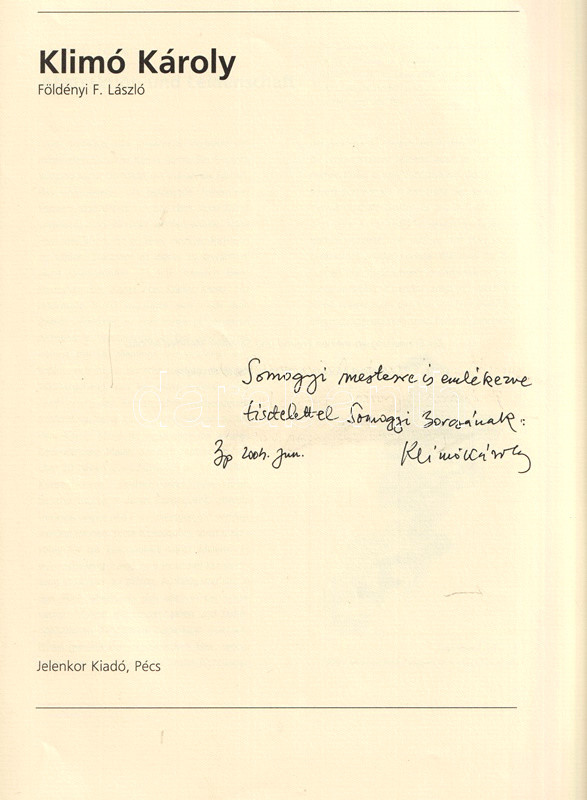 Klimó Károly
Földényi F. László
Somogyi mesterre is emlékezve
tisztelettel Somogyi Zorzának:
Bp 2004. Jun. Klimó Károly
Jelenkor Kiadó, Pécs